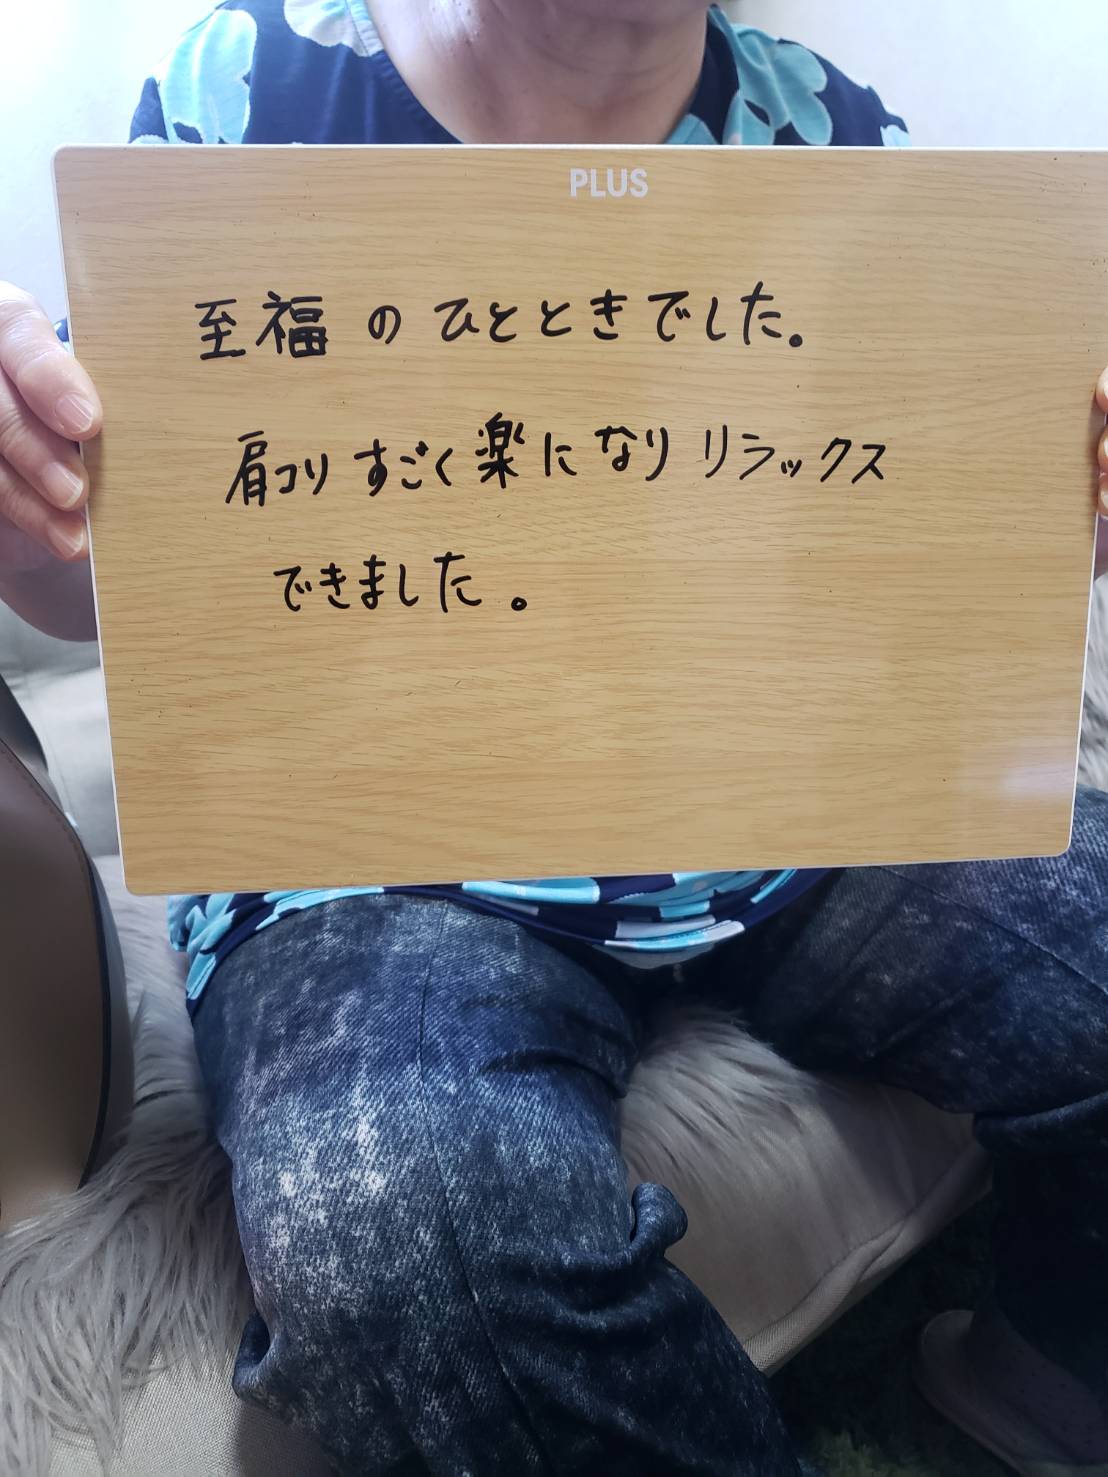 PLUS
至福のひとときでした。
肩コリすごく楽になりリラックス
できました。